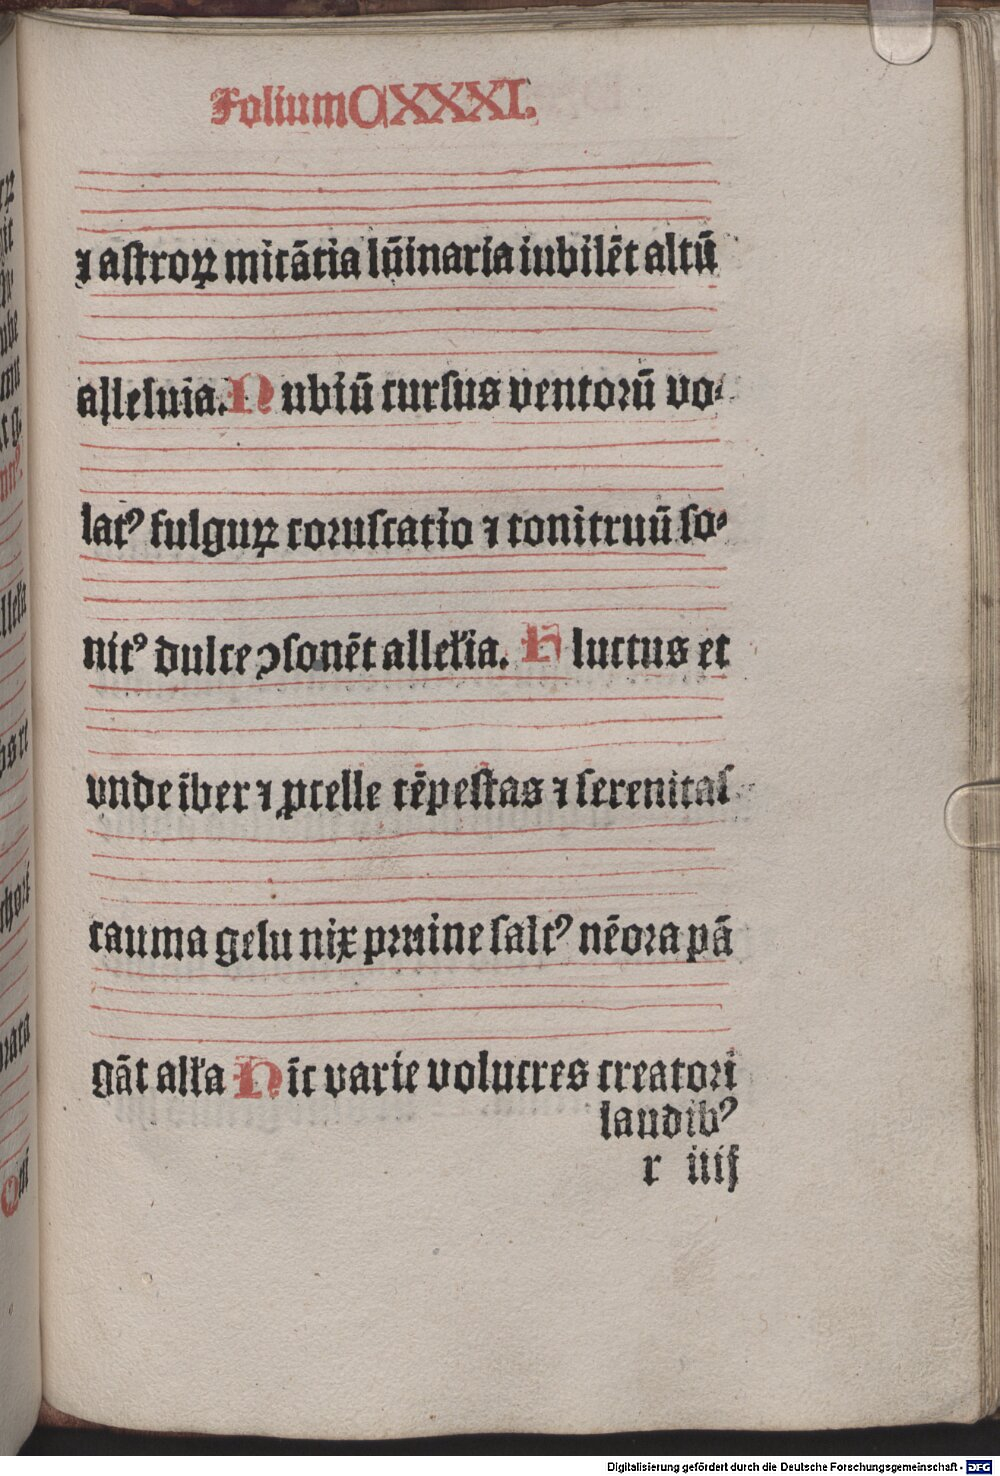 Folium CXXXI.
⁊ aſtroꝝ micãtia lũinaria iubilẽt altũ
alleluia. Nubiũ curſus ventoꝛũ vo⸗
latꝰ fulguꝝ coꝛuſcatio ⁊ tonitruũ ſo⸗
nitꝰ dulce ꝯſonẽt allełia. Fluctus et
vnde ĩber ⁊ ꝓcelle tẽpeſtas ⁊ ſerenitaſ
cauma gelu nix pꝛuine ſaltꝰ nẽoꝛa pã
gãt alła Hĩc varie volucres creatoꝛi
laudibꝰ
r iiij
Digitalisierung gefördert durch die Deutsche Forschungsgemeinschaft - DFG